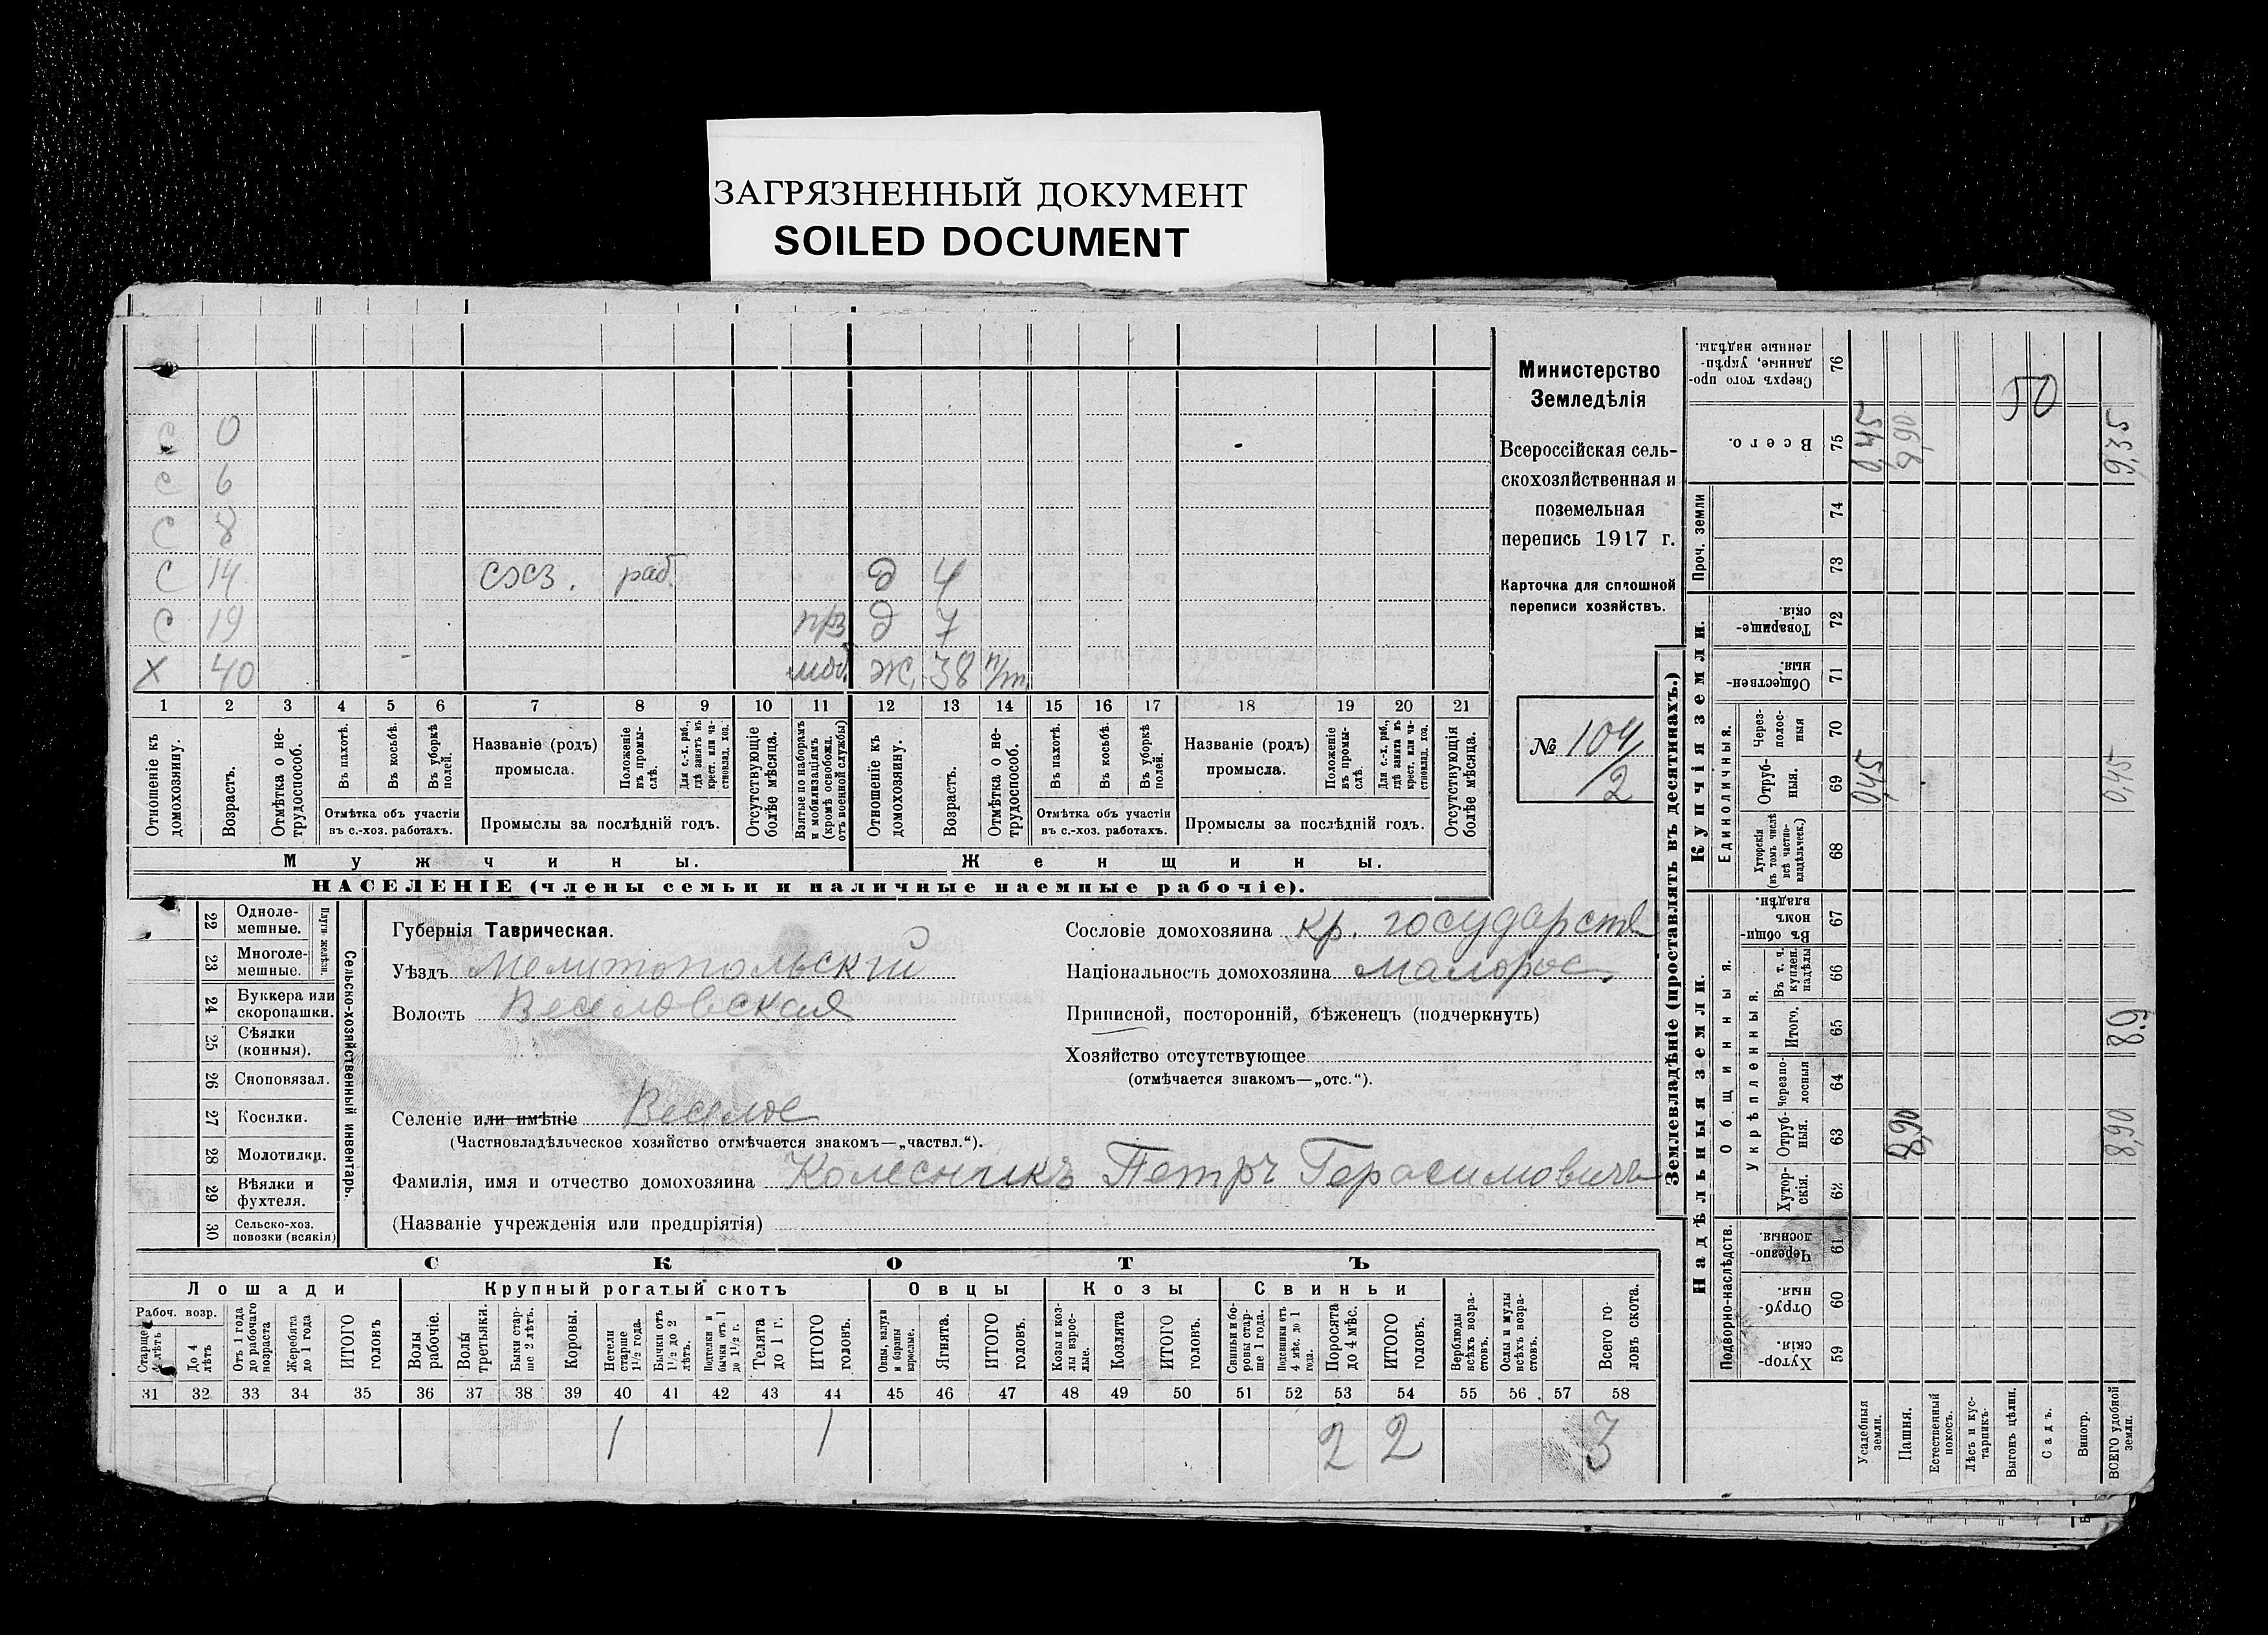 ЗАГРЯЗНЕННЫЙ ДОКУМЕНТ
SOILED DOCUMENT
с 0
с 6
с 8
с 14 сэсз. раб. д 4
с 19 прз д 7
х 40 моб. ж. 38 н/т.
1 2 3 4 5 6 7 8 9 10 11 12 13 14 15 16 17 18 19 20 21
Отношеніе къ домохозяину.
Возрастъ.
Отмѣтка о не-
трудоспособ.
Въ пахотѣ.
Въ косьбѣ.
Въ уборкѣ полей.
Отмѣтка объ участіи
въ с.-хоз. работахъ.
Названіе (родъ)
промысла.
Положеніе
въ промы-
слѣ.
Для с.-х. раб.,
гдѣ занятъ въ
крест. или ча-
стновлад. хоз.
Промыслы за послѣдній годъ.
Отсутствующіе
болѣе мѣсяца.
Взятые по наборамъ
и мобилизаціямъ
(кромѣ освобожд.
отъ военной службы)
Отношеніе къ
домохозяину.
Возрастъ.
Отмѣтка о не-
трудоспособ.
Въ пахотѣ.
Въ косьбѣ.
Въ уборкѣ
полей.
Отмѣтка объ участіи
въ с.-хоз. работахъ.
Названіе (родъ)
промысла.
Положеніе
въ промы-
слѣ.
Для с.-х. раб.,
гдѣ занята въ
крест. или ча-
стновлад. хоз.
Промыслы за послѣдній годъ.
Отсутствующія
болѣе мѣсяца.
Мужчины.
Женщины.
НАСЕЛЕНІЕ (члены семьи и наличные наемные рабочіе).
Министерство
Земледѣлія
Всероссійская сель-
скохозяйственная и
поземельная
перепись 1917 г.
Карточка для сплошной
переписи хозяйствъ.
№ 104/2
22 Одноле-
мешные.
23 Многоле-
мешные.
Плуги желѣзн.
24 Буккера или
скоропашки.
25 Сѣялки
(конныя).
26 Сноповязал.
27 Косилки.
28 Молотилки.
29 Вѣялки и
фухтеля.
30 Сельско-хоз.
повозки (всякія)
Сельско-хозяйственный инвентарь.
Губернія Таврическая.
Уѣздъ Мелитопольскій
Волость Веселовская
Селеніе или имѣніе Веселое
(Частновладѣльческое хозяйство отмѣчается знакомъ—„частвл.“).
Фамилія, имя и отчество домохозяина Колесникъ Петръ Герасимовичъ
(Названіе учрежденія или предпріятія)
Сословіе домохозяина кр. государств
Національность домохозяина малорос.
Приписной, посторонній, бѣженецъ (подчеркнуть)
Хозяйство отсутствующее
(отмѣчается знакомъ—„отс.“).
СКОТЪ
Лошади
Крупный рогатый скотъ
Овцы
Козы
Свиньи
Рабоч. возр.
Старше
4 лѣтъ
До 4
лѣтъ
Отъ 1 года
до рабочаго
возраста
Жеребята
до 1 года
ИТОГО
головъ
Волы
рабочіе.
Волы
третьяки.
Быки стар-
ше 2 лѣтъ.
Коровы.
Нетели
старше
1½ года.
Бычки отъ
1½ до 2
лѣтъ.
Подтелки и
бычки отъ 1
до 1½ г.
Телята
до 1 г.
ИТОГО
головъ.
Овцы, валухи
и бараны
взрослые.
Ягнята.
ИТОГО
головъ.
Козы и коз-
лы взрос-
лые.
Козлята
ИТОГО
головъ.
Свиньи и бо-
ровы стар-
ше 1 года.
Подсвинки отъ
4 мѣс. до 1
года.
Поросята
до 4 мѣс.
ИТОГО
головъ.
Верблюды
всѣхъ возра-
стовъ.
Ослы и мулы
всѣхъ возра-
стовъ.
Всего го-
ловъ скота.
31 32 33 34 35 36 37 38 39 40 41 42 43 44 45 46 47 48 49 50 51 52 53 54 55 56 57 58
1 1 2 2 3
Землевладѣніе (проставлять въ десятинахъ.)
Сверхъ того про-
данные, укрѣп-
ленные надѣлы.
76
50
Всего.
75 0,45 8,90 9,35
Проч. земли
74
73
Купчія земли.
Товарище-
скія.
72
Обществен-
ныя.
71
Единоличныя.
Через-
полос-
ныя
70
Отруб-
ныя.
69 0,45 0,45
Хуторскія
(въ томъ числѣ
всѣ частно-
владѣльческ.)
68
Надѣльныя земли.
Общинныя.
Въ общин-
номъ
владѣн.
67
Укрѣпленныя.
Въ т. ч.
куплен.
надѣлы
66
Итого.
65 8.9
Черезпо-
лосныя
64
Отруб-
ныя.
63 8,90 8,90
Хутор-
скія.
62
Подворно-наслѣдств.
Черезпо-
лосныя.
61
Отруб-
ныя.
60
Хутор-
скія.
59
Усадебныя
земли.
Пашня.
Естественный
покосъ.
Лѣсъ и кус-
тарникъ.
Выгонъ цѣлин.
Садъ.
Виногр.
ВСЕГО удобной
земли.